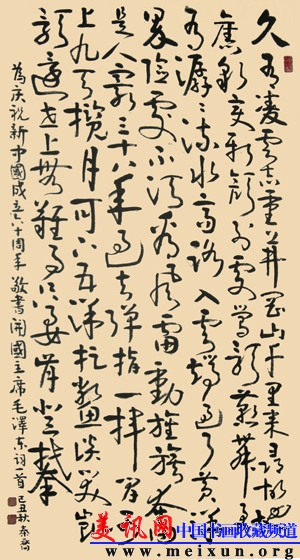 久有凌雲志重上井岡山千里来尋故地
舊貌变新颜到处莺歌燕舞更
有潺潺流水高路入雲端過了黄洋
界险处不须看風雷動旌旗奋
是人寰三十八年过去弹指一挥间可
上九天揽月可下五洋捉鳖谈笑凯
歌還世上無難事只要肯登攀
為庆祝新中國成立六十周年敬書開國主席毛澤东詞一首己丑秋
美讯网 中国书画收藏频道
www.meixun.org